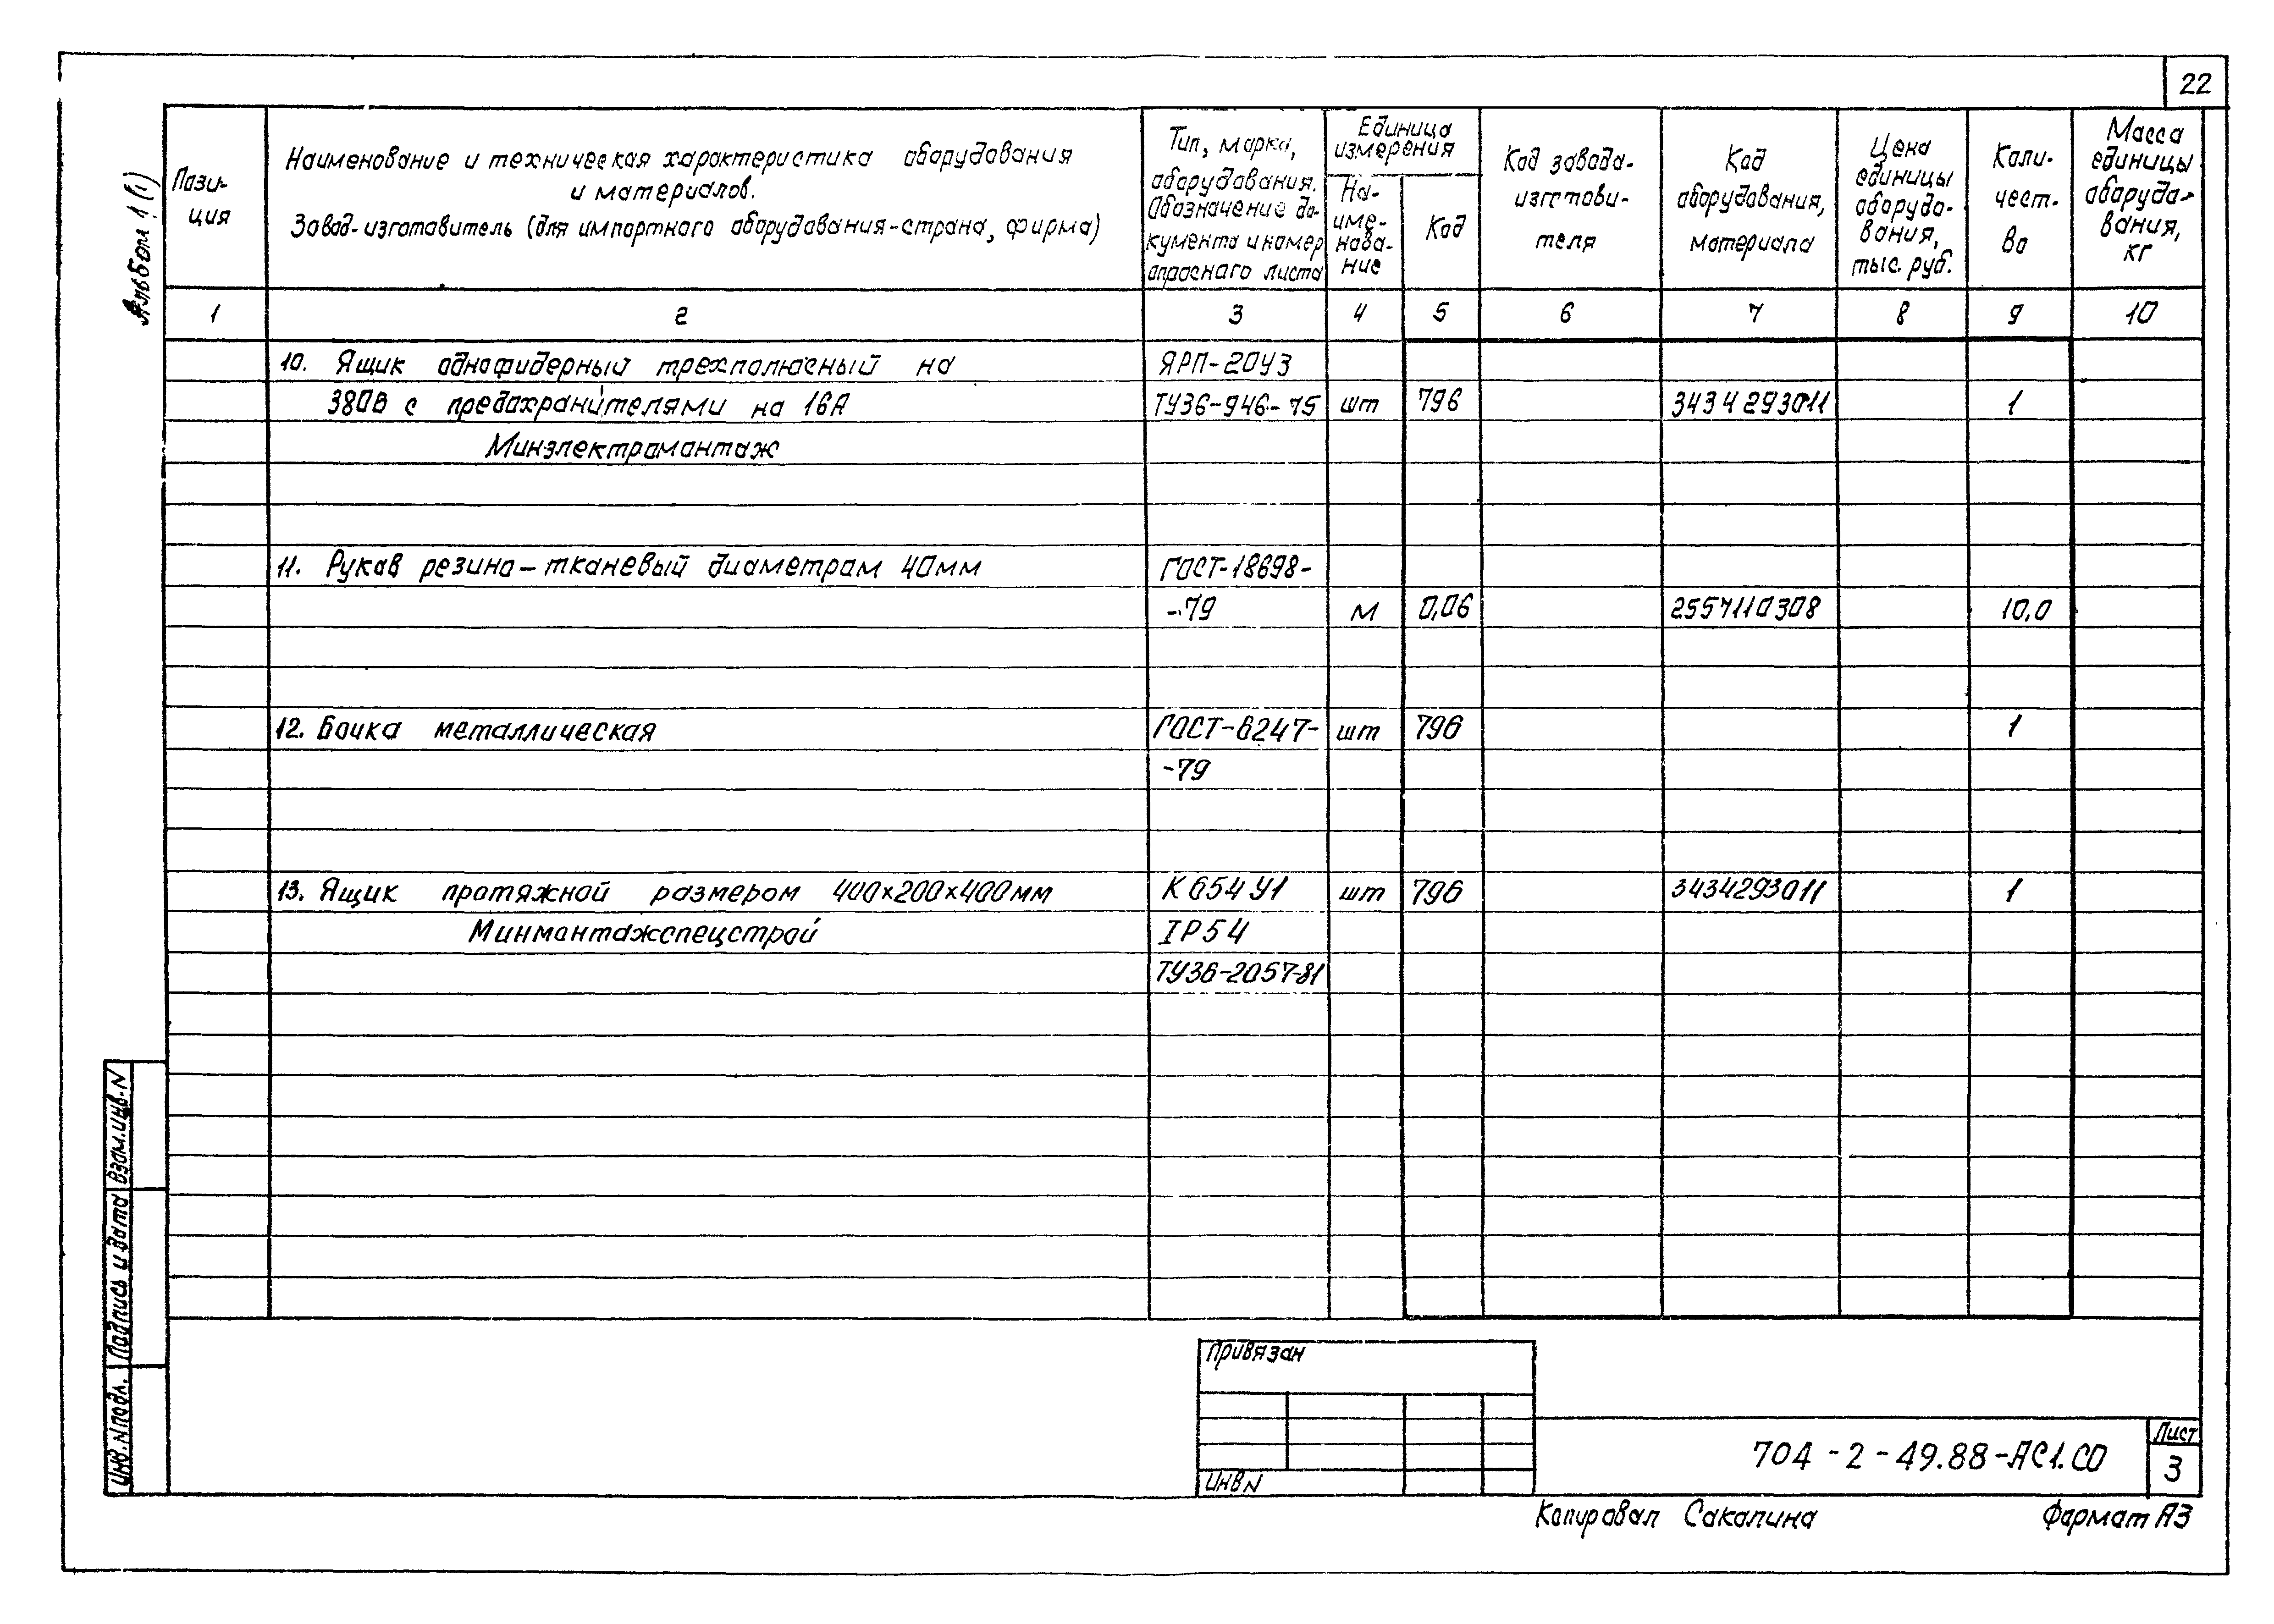 22
Альбом 1(1)
Пози-
ция
Наименование и техническая характеристика оборудования
и материалов.
Завод-изготовитель (для импортного оборудования-страна, фирма)
Тип, марка,
оборудования.
Обозначение до-
кумента и номер
опросного листа
Единица
измерения
На-
име-
нова-
ние
Код
Код завода-
изготови-
теля
Код
оборудования,
материала
Цена
единицы
оборудо-
вания,
тыс. руб.
Коли-
чест-
во
Масса
единицы
оборудо-
вания,
кг
1 2 3 4 5 6 7 8 9 10
10. Ящик однофидерный трехполюсный на ЯРП-20У3
380В с предохранителями на 16А ТУ36-946-75 шт 796 3434293011 1
Минэлектромонтаж
11. Рукав резино-тканевый диаметром 40мм ГОСТ-18698-
-79 м 0,06 2557110308 10,0
12. Бочка металлическая ГОСТ-6247- шт 796 1
-79
13. Ящик протяжной размером 400×200×400мм К654У1 шт 796 3434293011 1
Минмонтажспецстрой IP54
ТУ36-2057-81
Взам.инв.N
Подпись и дата
Инв.Nподл.
Привязан
Инв N
704-2-49.88-АС1.СО
Лист
3
Копировал Сакалина Формат А3